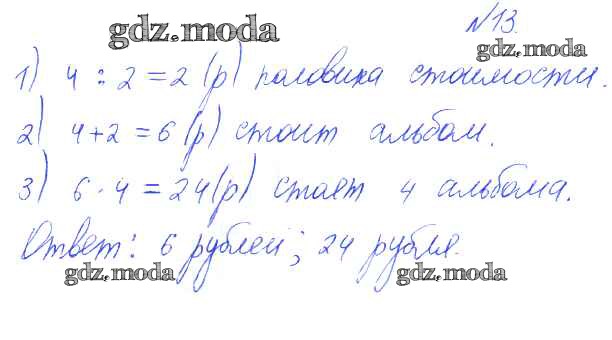 №13.
gdz.moda
gdz.moda
1) 4 : 2 = 2 (р) половина стоимости.
2) 4+2 = 6 (р) стоит альбом.
3) 6 · 4 = 24 (р) стоят 4 альбома.
Ответ: 6 рублей; 24 рубля.
gdz.moda
gdz.moda